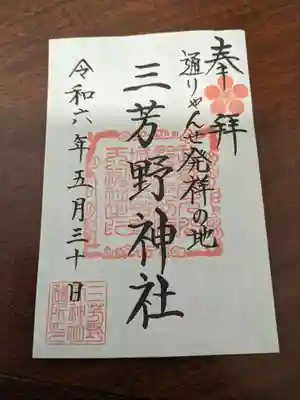 奉拝
通りゃんせ発祥の地
三芳野神社
令和六年五月三十日